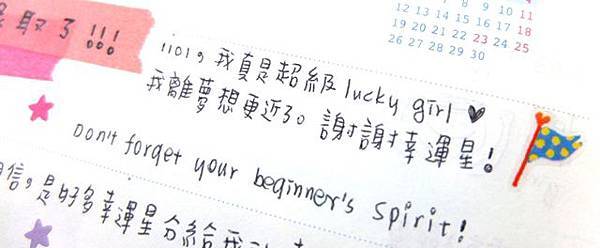 取了!!!
5 6 7 8 9 10 11
12 13 14 15 16 17 18
19 20 21 22 23 24 25
26 27 28 29 30
1101,我真是超級lucky girl♥
我離夢想更近了。謝謝幸運星!
Don't forget your beginner's spirit!
信,是好多幸運星分給我